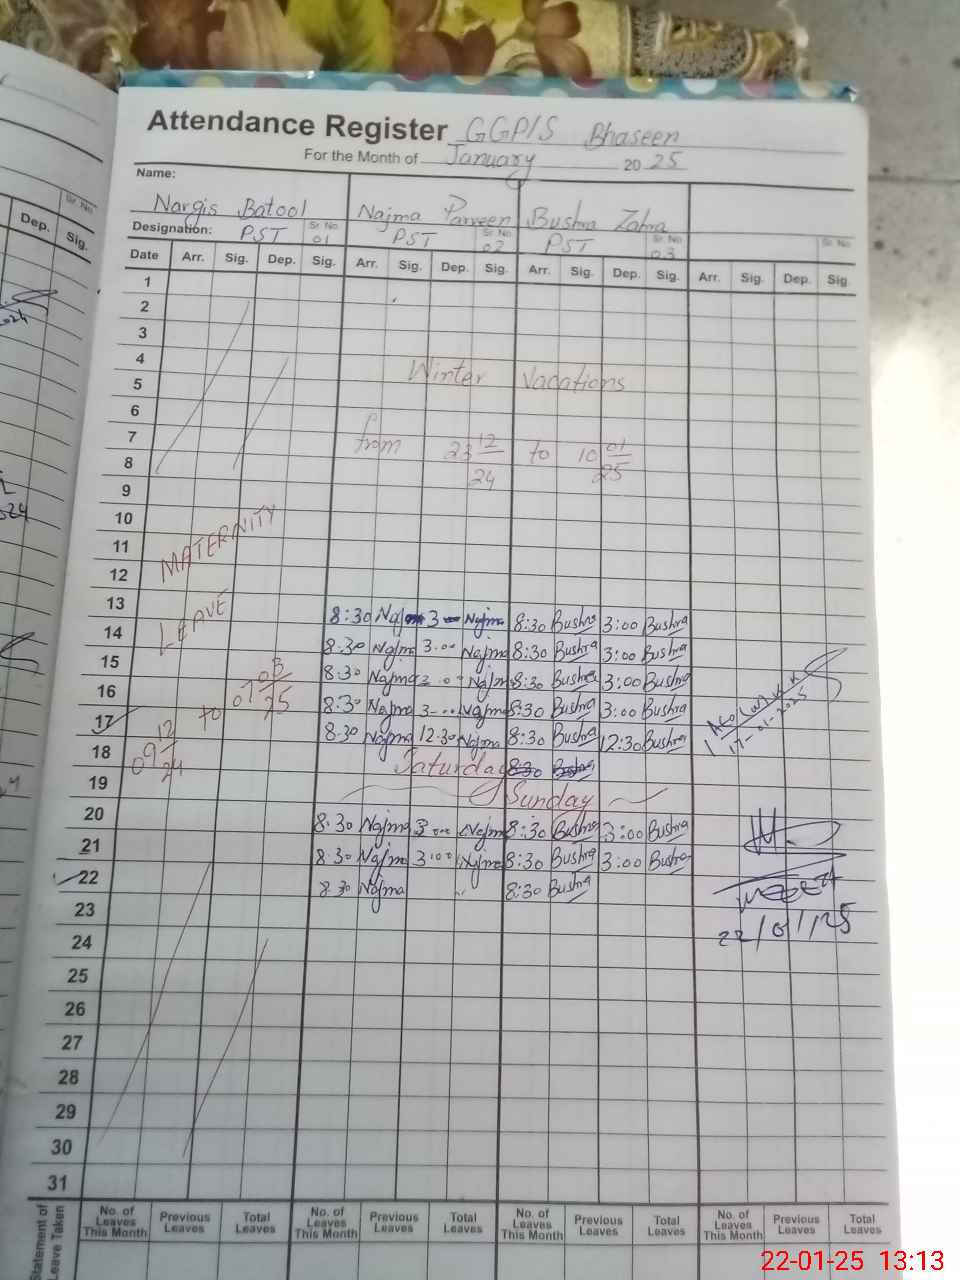 Attendance Register GGP/S Bhaseen
For the Month of January 2025
Name:
Nargis Batool Najma Parveen Bushra Zahra
Designation: PST Sr. No 01 PST Sr. No 02 PST Sr. No 03 Sr. No
Date Arr. Sig. Dep. Sig. Arr. Sig. Dep. Sig. Arr. Sig. Dep. Sig. Arr. Sig. Dep. Sig.
1
2
3
4
Winter Vacations
5
6
7
from 23 12/24 to 10 01/25
8
9
10
11
12
MATERNITY
LEAVE
09 12/24 to 07 03/25
13 8:30 Najma 3 Najma 8:30 Bushra 3:00 Bushra
14 8:30 Najma 3.00 Najma 8:30 Bushra 3:00 Bushra
15 8:30 Najma Najma 8:30 Bushra 3:00 Bushra
16 8:30 Najma 3 Najma 8:30 Bushra 3:00 Bushra
17 8:30 Najma 12:30 Najma 8:30 Bushra 12:30 Bushra
17-01-2025
18 Saturday 8:30 Bushra
19 Sunday
20 8:30 Najma 3 Najma 8:30 Bushra 3:00 Bushra
21 8:30 Najma 3:00 Najma 8:30 Bushra 3:00 Bushra
22 8:30 Najma 8:30 Bushra
22/01/25
23
24
25
26
27
28
29
30
31
Statement of Leave Taken
No. of Leaves This Month Previous Leaves Total Leaves No. of Leaves This Month Previous Leaves Total Leaves No. of Leaves This Month Previous Leaves Total Leaves No. of Leaves This Month Previous Leaves Total Leaves
Sr. No
Dep. Sig.
2024
22-01-25 13:13